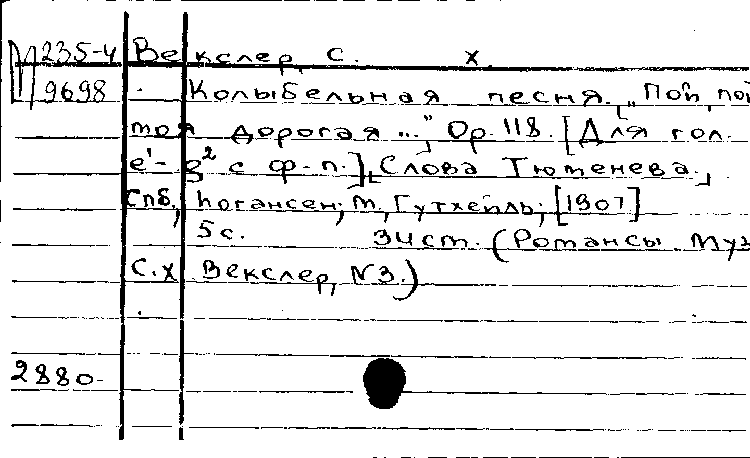 М 235-4 Векслер, С. Х.
9698 Колыбельная песня. „Пой, пой
моя дорогая..." Ор. 118. [Для гол.
e'-g² с ф-п.] [Слова Тютенева.]
Спб., Иогансен; М., Гутхейль; [1901]
5 с. 34 cm. (Романсы муз
С. Х Векслер, N3.)
2880